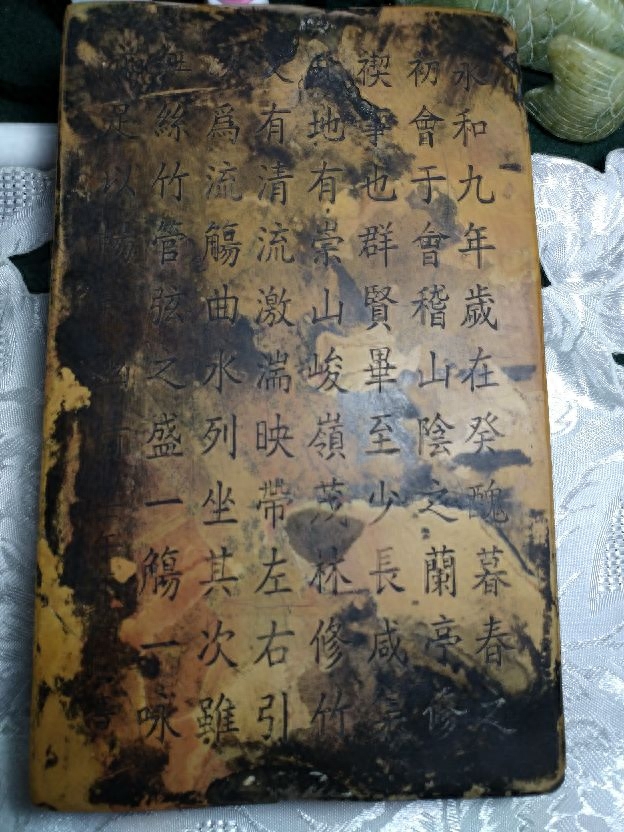 永和九年歲在癸醜暮春之
初會于會稽山陰之蘭亭修
禊事也群賢畢至少長咸集
地有崇山峻嶺茂林修竹
又有清流激湍映帶左右引
為流觴曲水列坐其次雖
絲竹管弦之盛一觴一咏
足以暢幽